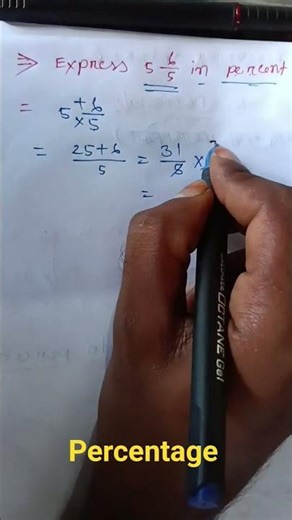 ⇒ Express 5 6/5 in percent
= 5 + 6 / × 5
= 25+6 / 5 = 31 / 5 ×
=
OCTANE Gel
Percentage